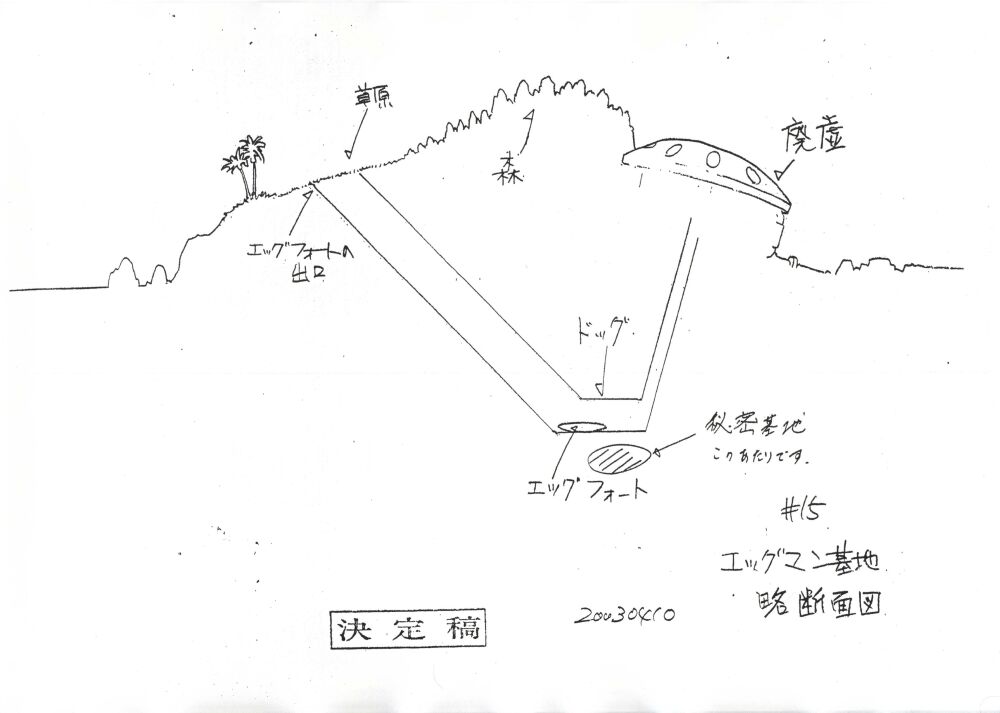 草原
森
廃墟
エッグフォートの
出口
ドッグ
秘密基地
このあたりです.
エッグフォート
#15
エッグマン基地
略断面図
20030410
決定稿